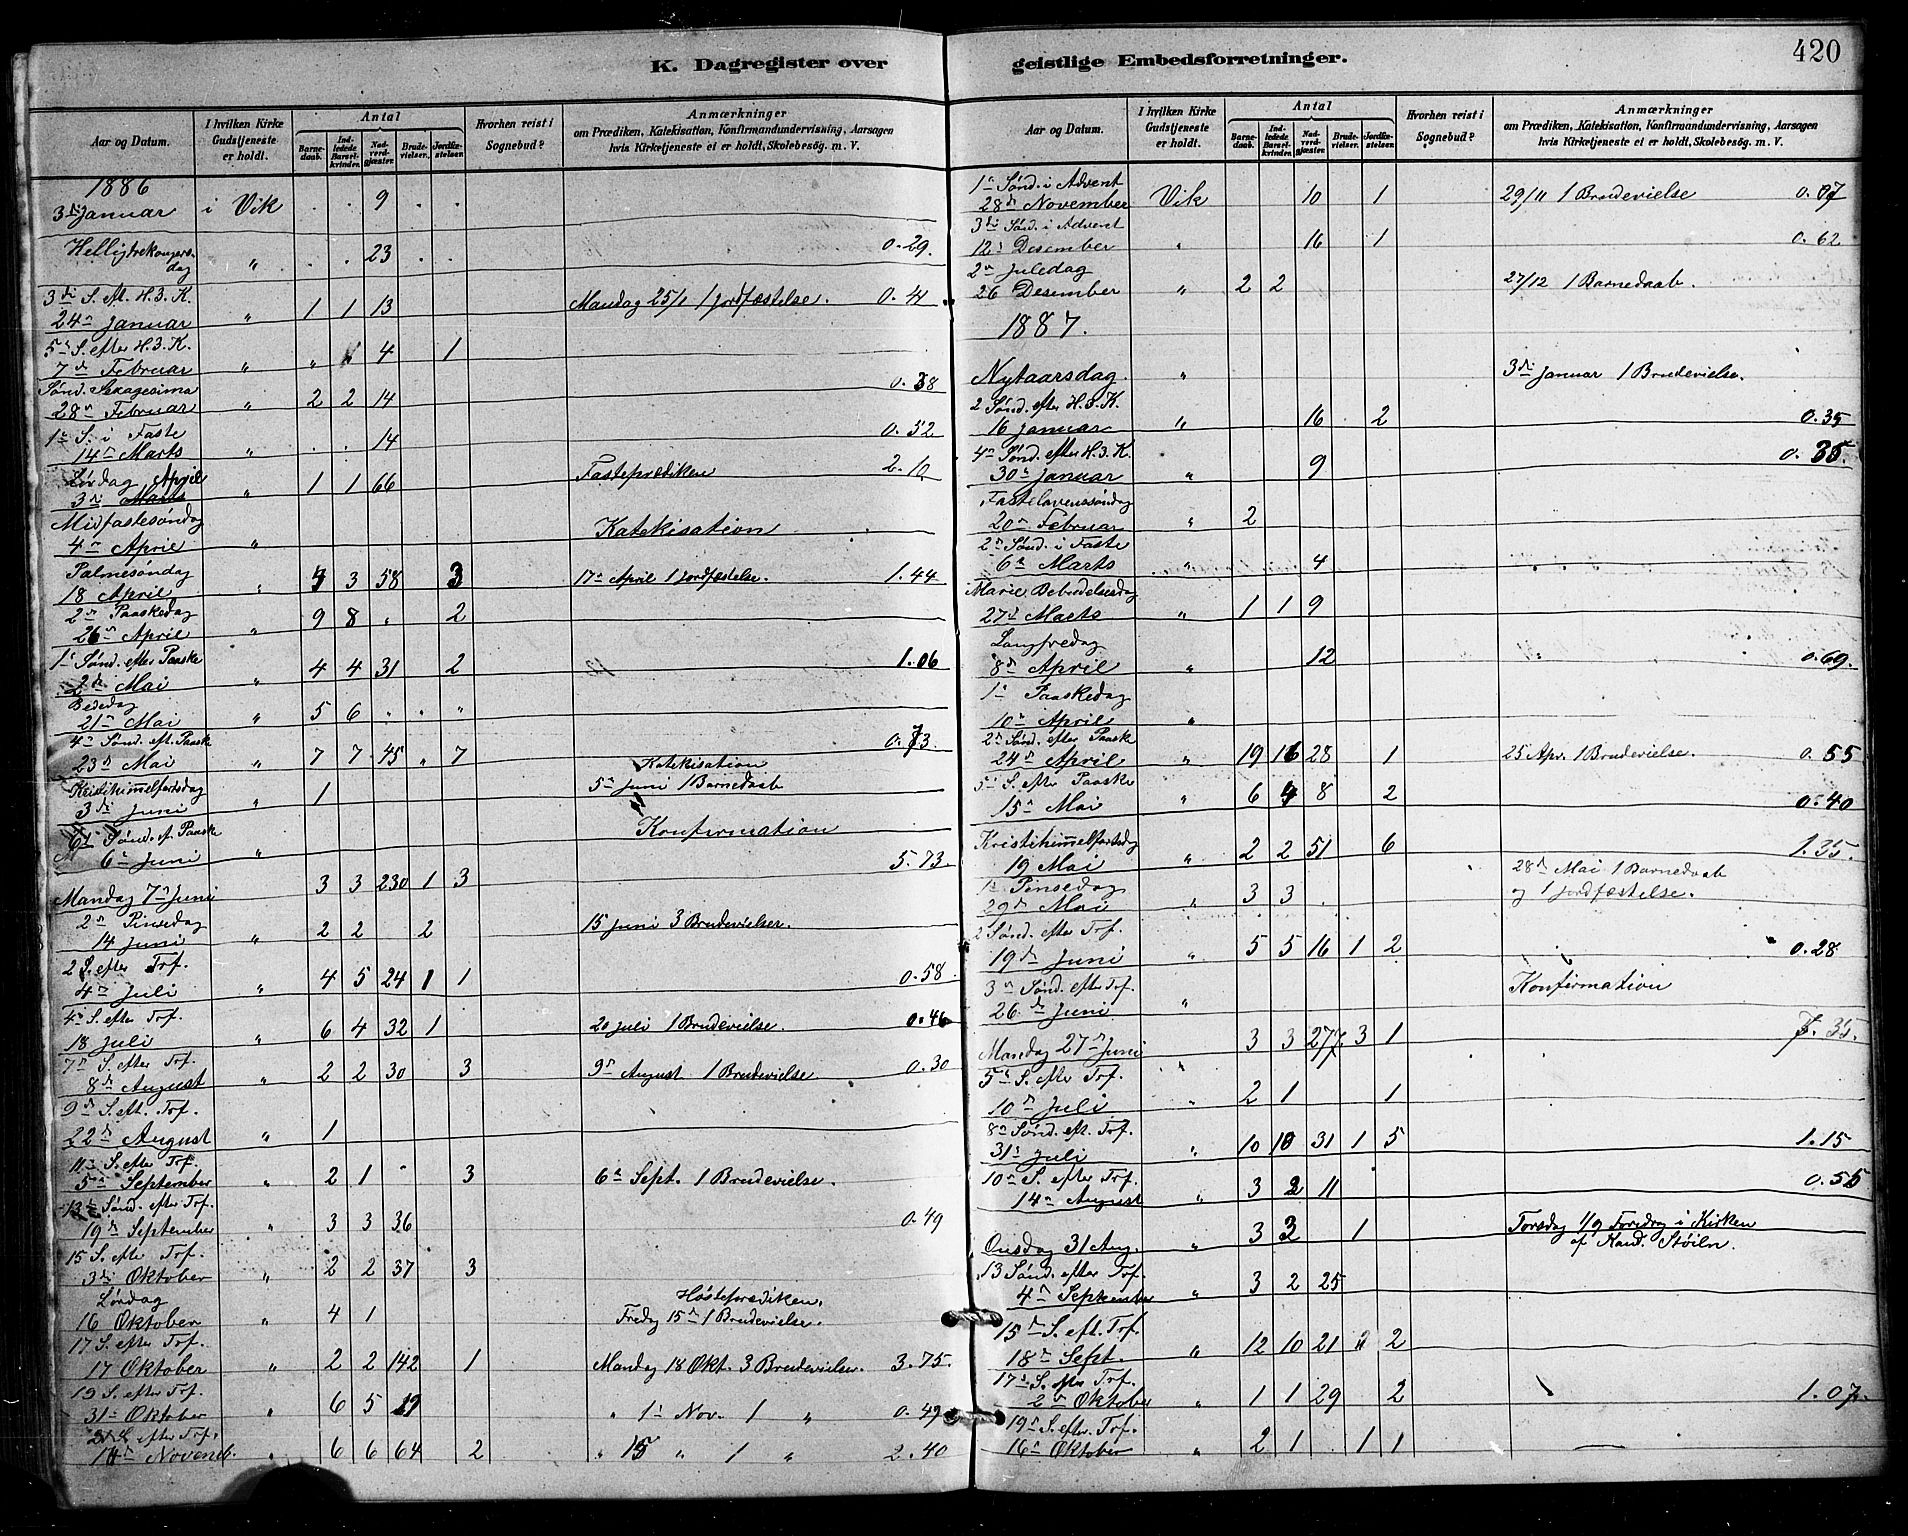 K. Dagregister over
Aar og Datum. | I hvilken Kirke Gudstjeneste er holdt. | Antal | Barnedaab. | Indledede Barselkvinder. | Nadverdgjæster. | Brudevielser. | Jordfæstelser. | Hvorhen reist i Sognebud? | Anmærkninger om Prædiken, Katekisation, Konfirmandundervisning, Aarsagen hvis Kirketjeneste ei er holdt, Skolebesøg. m. V.
1886
3di Januar i Vik . . 9 . .
Helligtrekongers- 0.29
dag " . . 23 .
3di S. Af. H.3.K. Mandag 25/1 1 Jordfæstelse. 0.41
24n Januar " 1 1 13
5te S. efter H.3.K.
7de Februar " " 4 1
Sønd. Sexagesima 0.38
28n Februar " 2 2 14
1n S. i Faste 0.52
14n Marts " . . 14
Lørdag April Fasteprædiken 2.10
3di Marts " 1 1 66
Midfastesøndag Katekisation
4n April "
Palmesøndag 17n April 1 Jordfæstelse. 1.44
18 April " 3 58 3
2n Paaskedag
26n April " 9 8 " 2
1n Sønd. efter Paaske 1.06
2dn Mai " 4 4 31 2
Bededag
21n Mai " 5 6 " " "
4n Sønd. eft. Paaske 0.73.
23n Mai " 7 7 45 " 7
Katekisation
Kristihimmelfartsdag 5n Juni 1 Barnedaab
3di Juni " 1
6n Sønd. ef. Paaske Konfirmation
6n Juni "
Mandag 7n Juni 3 3 230 1 3 5.73
2n Pinsedag 15 Juni 3 Brudevielser.
14 Juni " 2 2 2
2 S. efter Trf.
4n Juli " 4 5 24 1 1 0.58
4n S. efter Trf. 20 Juli 1 Brudevielse. 0.46
18 Juli " 6 4 32 1
7n S. efter Trf. 9n August 1 Brudevielse 0.30
8n August " 2 2 30 3
9n S. eft. Trf.
22n August " 1
11n S. efter Trf. 6n Sept. 1 Brudevielse.
5n September " 2 1 3
13n Sønd. efter Trf. 0.49
19n September " 3 3 36
15 S. efter Trf.
3di Oktober " 2 2 37 3
Lørdag Høsteprædiken.
16 Oktober " 4 1 Fredag 15n 1 Brudevielse.
17 S. efter Trf.
17 Oktober " 2 2 142 1 Mandag 18 Okt. 3 Brudevielser. 3.75
19 S. efter Trf.
31n Oktober " 6 5 " 1n Nov. 1 " 0.49
21 S. efter Trf.
14n Novemb. " 6 6 64 2 " 15 " 1 " 2.40
geistlige Embedsforretninger.
420
Aar og Datum. | I hvilken Kirke Gudstjeneste er holdt. | Antal | Barnedaab. | Indledede Barselkvinder. | Nadverdgjæster. | Brudevielser. | Jordfæstelser. | Hvorhen reist i Sognebud? | Anmærkninger om Prædiken, Katekisation, Konfirmandundervisning, Aarsagen hvis Kirketjeneste ei er holdt, Skolebesøg. m. V.
1n Sønd. i Advent
28de November Vik 10 1 29/11 1 Brudevielse 0.07
3di Sønd. i Advent
12n Desember " 16 1 0.62
2n Juledag
26 Desember " 2 2 27/12 1 Barnedaab.
1887.
Nytaarsdag. " 3di Januar 1 Brudevielse.
2 Sønd. efter H.3.K.
16 Januar " 16 2 0.35
4n Sønd. efter H.3.K.
30n Januar " 9 0.35.
Fastelavenssøndag
20n Februar " 2
2n Sønd. i Faste
6n Marts " 4
Marie Bebudelsesdag
27n Marts " 1 1 9
Langfredag
8n April " 12 0.69.
1n Paaskedag
10n April "
2n Sønd. efter Paaske
24n April " 19 16 28 1 25 Apr. 1 Brudevielse. 0.55
5n S. efter Paaske
15n Mai " 6 4 8 2 0.40
Kristihimmelfartsdag
19 Mai " 2 2 51 6 1.35.
1n Pinsedag 28n Mai 1 Barnedaab
29n Mai " 3 3 og 1 Jordfæstelse.
2 Sønd. efter Trf.
19de Juni " 5 5 16 1 2 0.28
3n Sønd. efter Trf. Konfirmation
26de Juni "
Mandag 27n Juni " 3 3 277. 3 1 7.35.
5n S. efter Trf.
10n Juli " 2 1 1
8n Sønd. eft. Trf.
31n Juli " 10 10 31 1 5 1.15
10n S. efter Trf. 0.55
14n August " 3 2 11
Onsdag 31 Aug. " 3 3 1 Torsdag 1/9 Foredrag i Kirken
af Kand. Støiln.
13 Sønd. efter Trf.
4n September " 3 2 25
15n S. eft. Trf.
18n Sept. " 12 10 21 2
17n S. efter Trf.
2n Oktober " 1 1 29 2 1.07.
19n S. efter Trf.
16n Oktober " 2 1 1 1